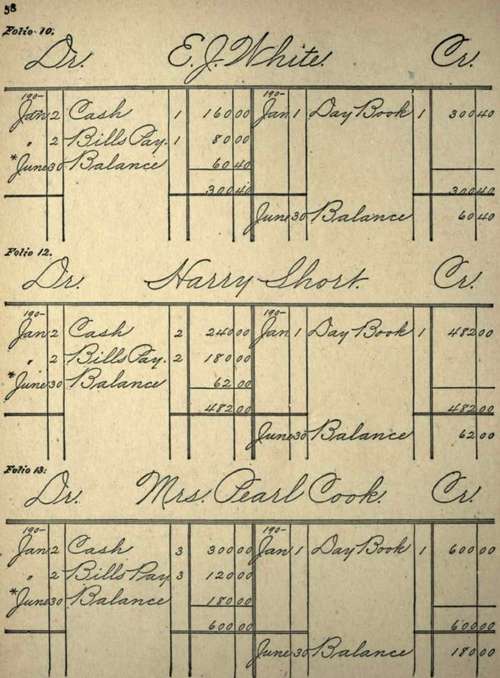 38
Folio 10.
Dr. E. J. White. Cr.
190- 190-
Jan 2 Cash 1 160 00 Jan 1 Day Book 1 300 40
" 2 Bills Pay. 1 80 00
*June 30 Balance 60 40
300 40 300 40
June 30 Balance 60 40
Folio 12.
Dr. Harry Short. Cr.
190- 190-
Jan 2 Cash 2 240 00 Jan 1 Day Book 1 482 00
" 2 Bills Pay. 2 180 00
*June 30 Balance 62 00
482 00 482 00
June 30 Balance 62 00
Folio 13.
Dr. Mrs. Pearl Cook. Cr.
190- 190-
Jan 2 Cash 3 300 00 Jan 1 Day Book 1 600 00
" 2 Bills Pay 3 120 00
*June 30 Balance 180 00
600 00 600 00
June 30 Balance 180 00